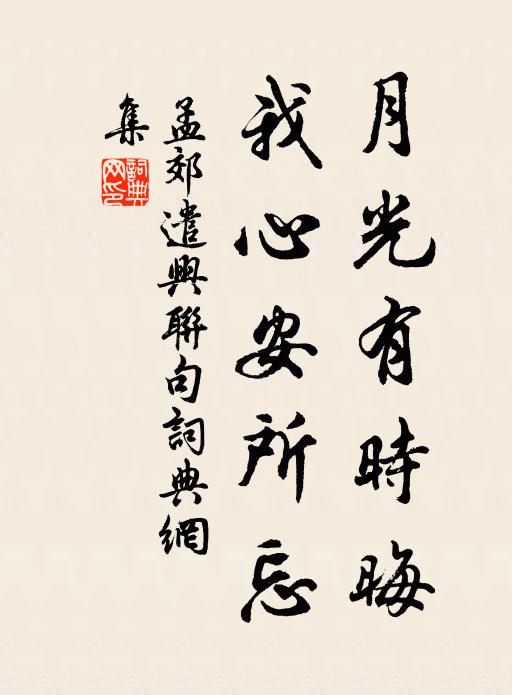 月光有時晦
我心安所忘
孟郊遣興聯句詞典網
集
詞典網印